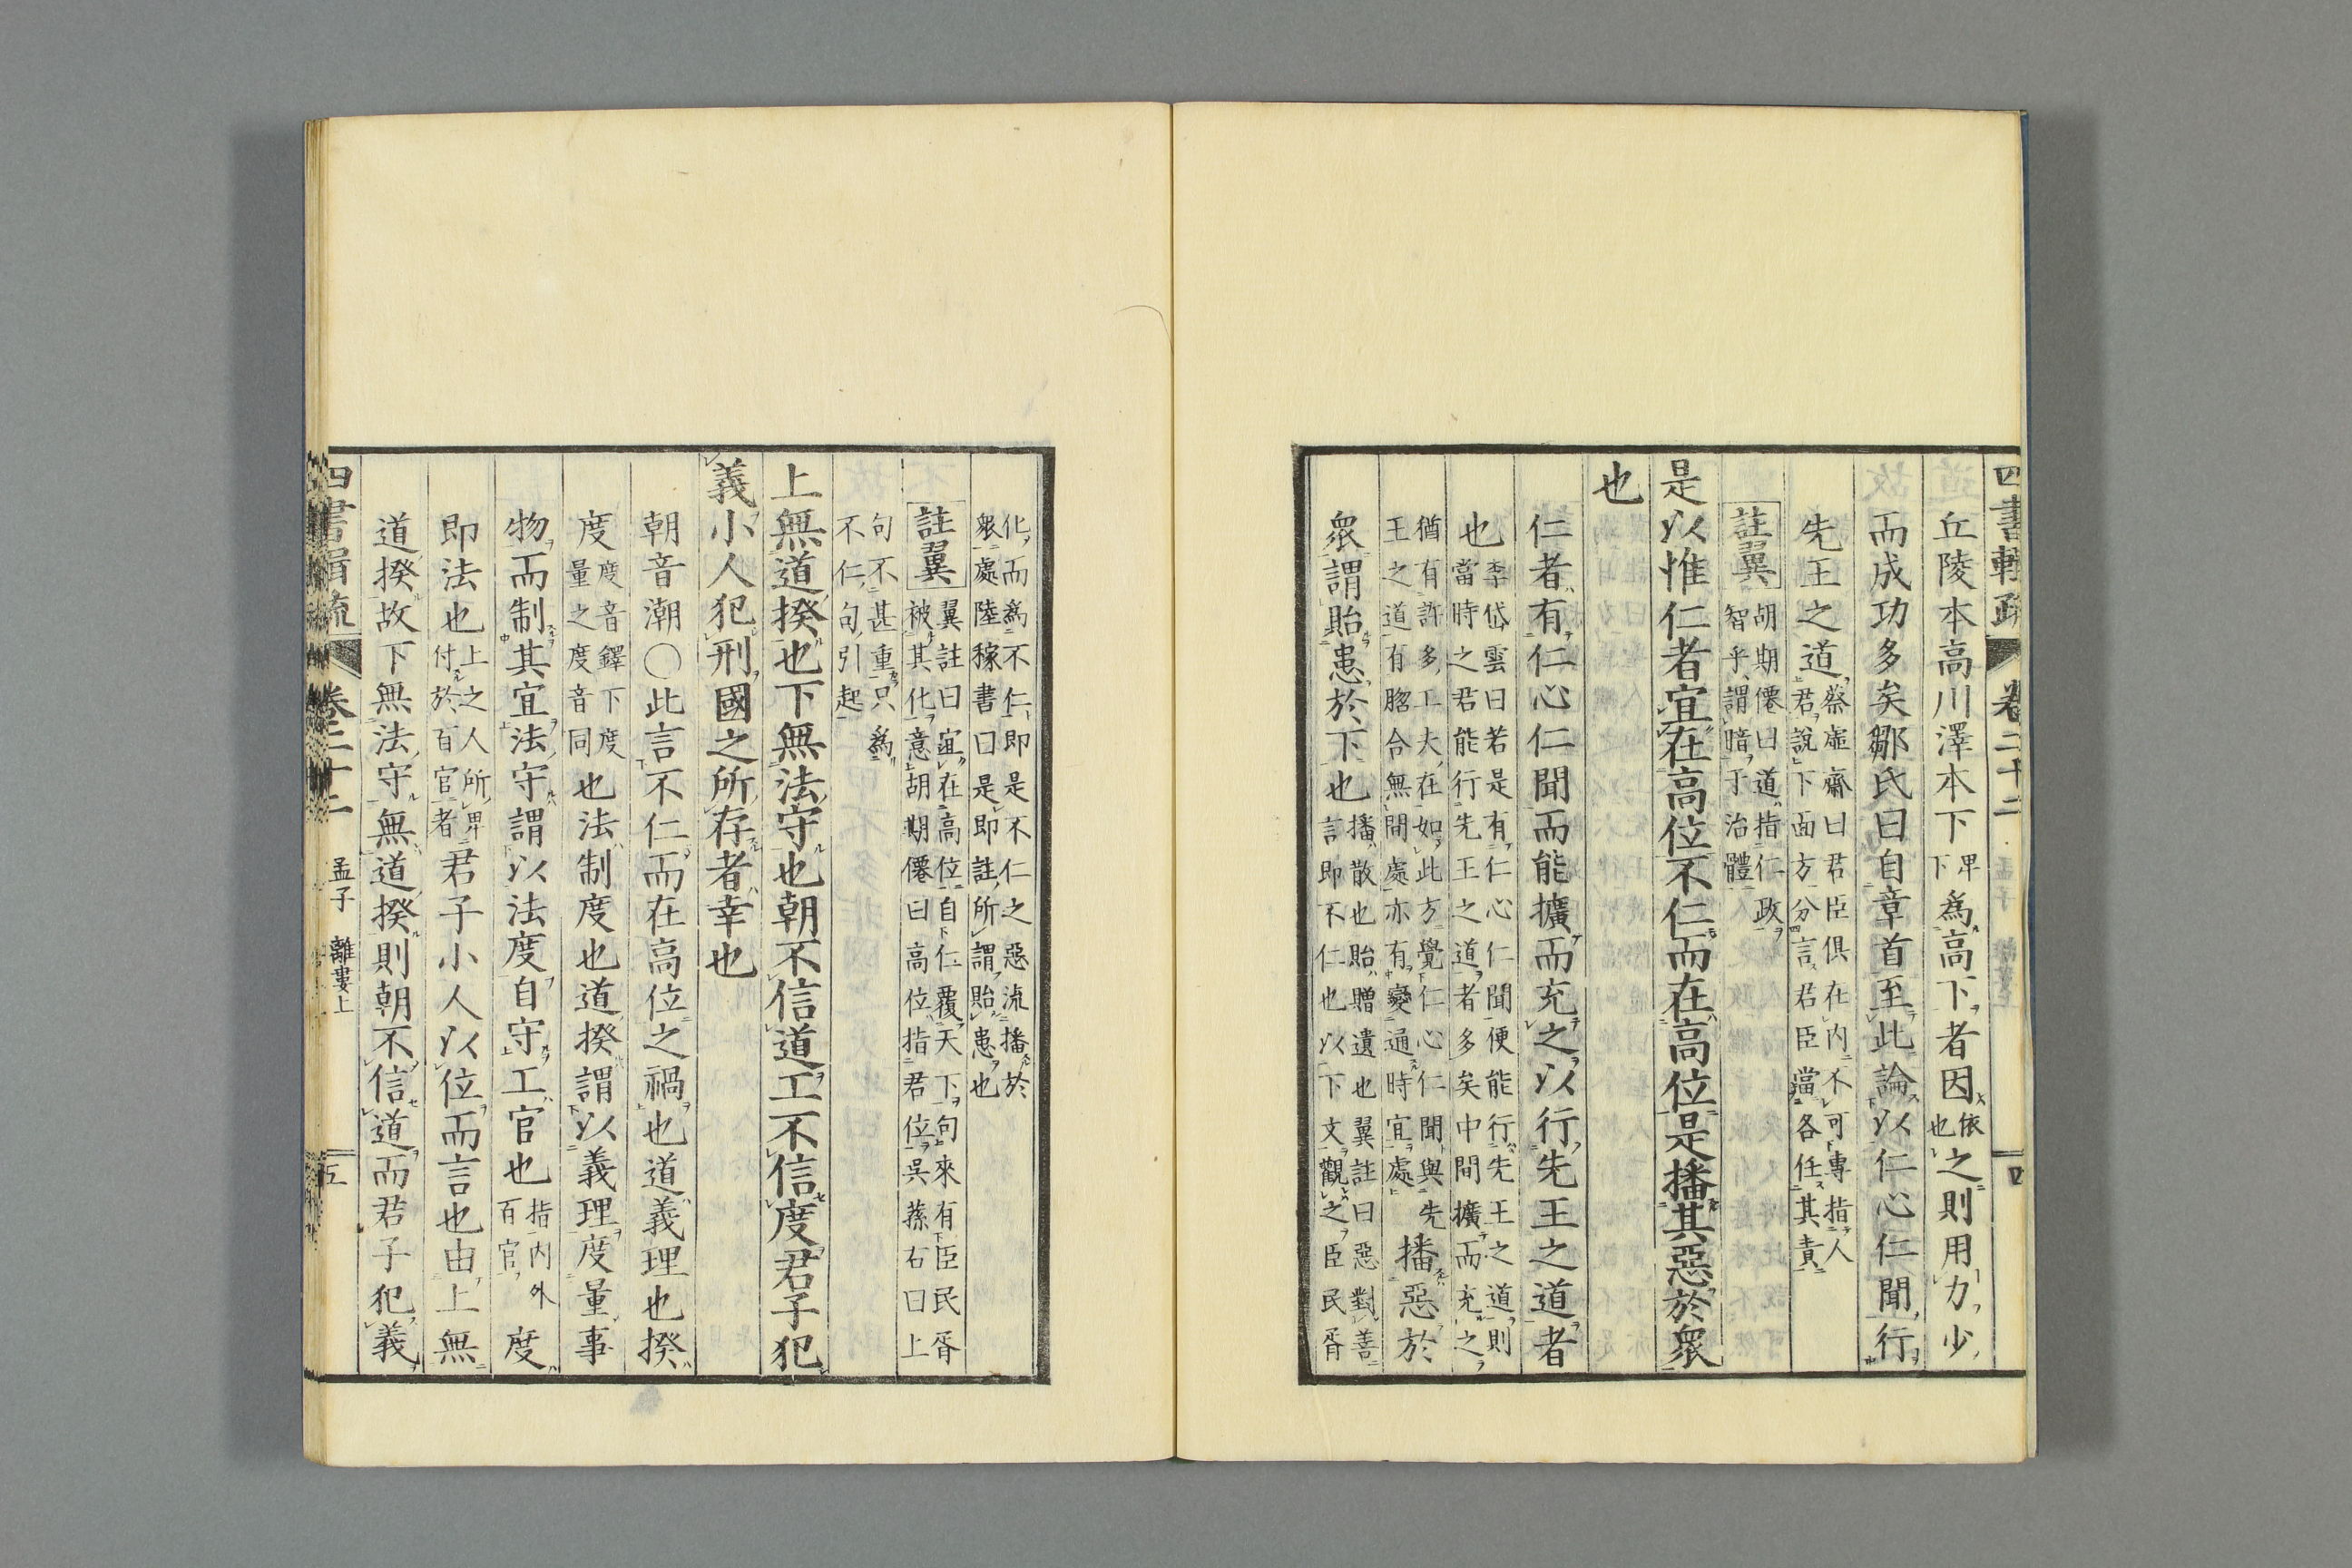 四書輯疏 卷二十二 孟子 離婁上 四
丘陵本高川澤本下卑下爲高下者因依也之則用力少
而成功多矣鄒氏曰自章首至此論以仁心仁聞行
先王之道蔡虛齋曰君臣俱在内不可專指人君說下面方分言君臣當各任其責
註翼胡期僊曰道指仁政智乎謂暗于治體
是以惟仁者宜在高位不仁而在高位是播其惡於衆
也
仁者有仁心仁聞而能擴而充之以行先王之道者
也李岱雲曰若是有仁心仁聞便能行先王之道則當時之君能行先王之道者多矣中間擴而充之
猶有許多工夫在如此方覺仁心仁聞與先王之道有脗合無間處亦有變通時宜處播惡於
衆謂貽患於下也播散也貽贈遺也翼註曰惡對善言即不仁也以下文觀之臣民胥
化而爲不仁即是不仁之惡流播於衆處陸稼書曰是即註所謂貽患也
註翼翼註曰宜在高位自仁覆天下句來有臣民胥被其化意胡期僊曰高位指君位吳蓀右曰上
句不甚重只爲不仁句引起
上無道揆也下無法守也朝不信道工不信度君子犯
義小人犯刑國之所存者幸也
朝音潮○此言不仁而在高位之禍也道義理也揆
度度音鐸下度量之度音同也法制度也道揆謂以義理度量事
物而制其宜法守謂以法度自守工官也指内外百官度
即法也上之人所畀付於百官者君子小人以位而言也由上無
道揆故下無法守無道揆則朝不信道而君子犯義
四書輯疏 卷二十二 孟子 離婁上 五